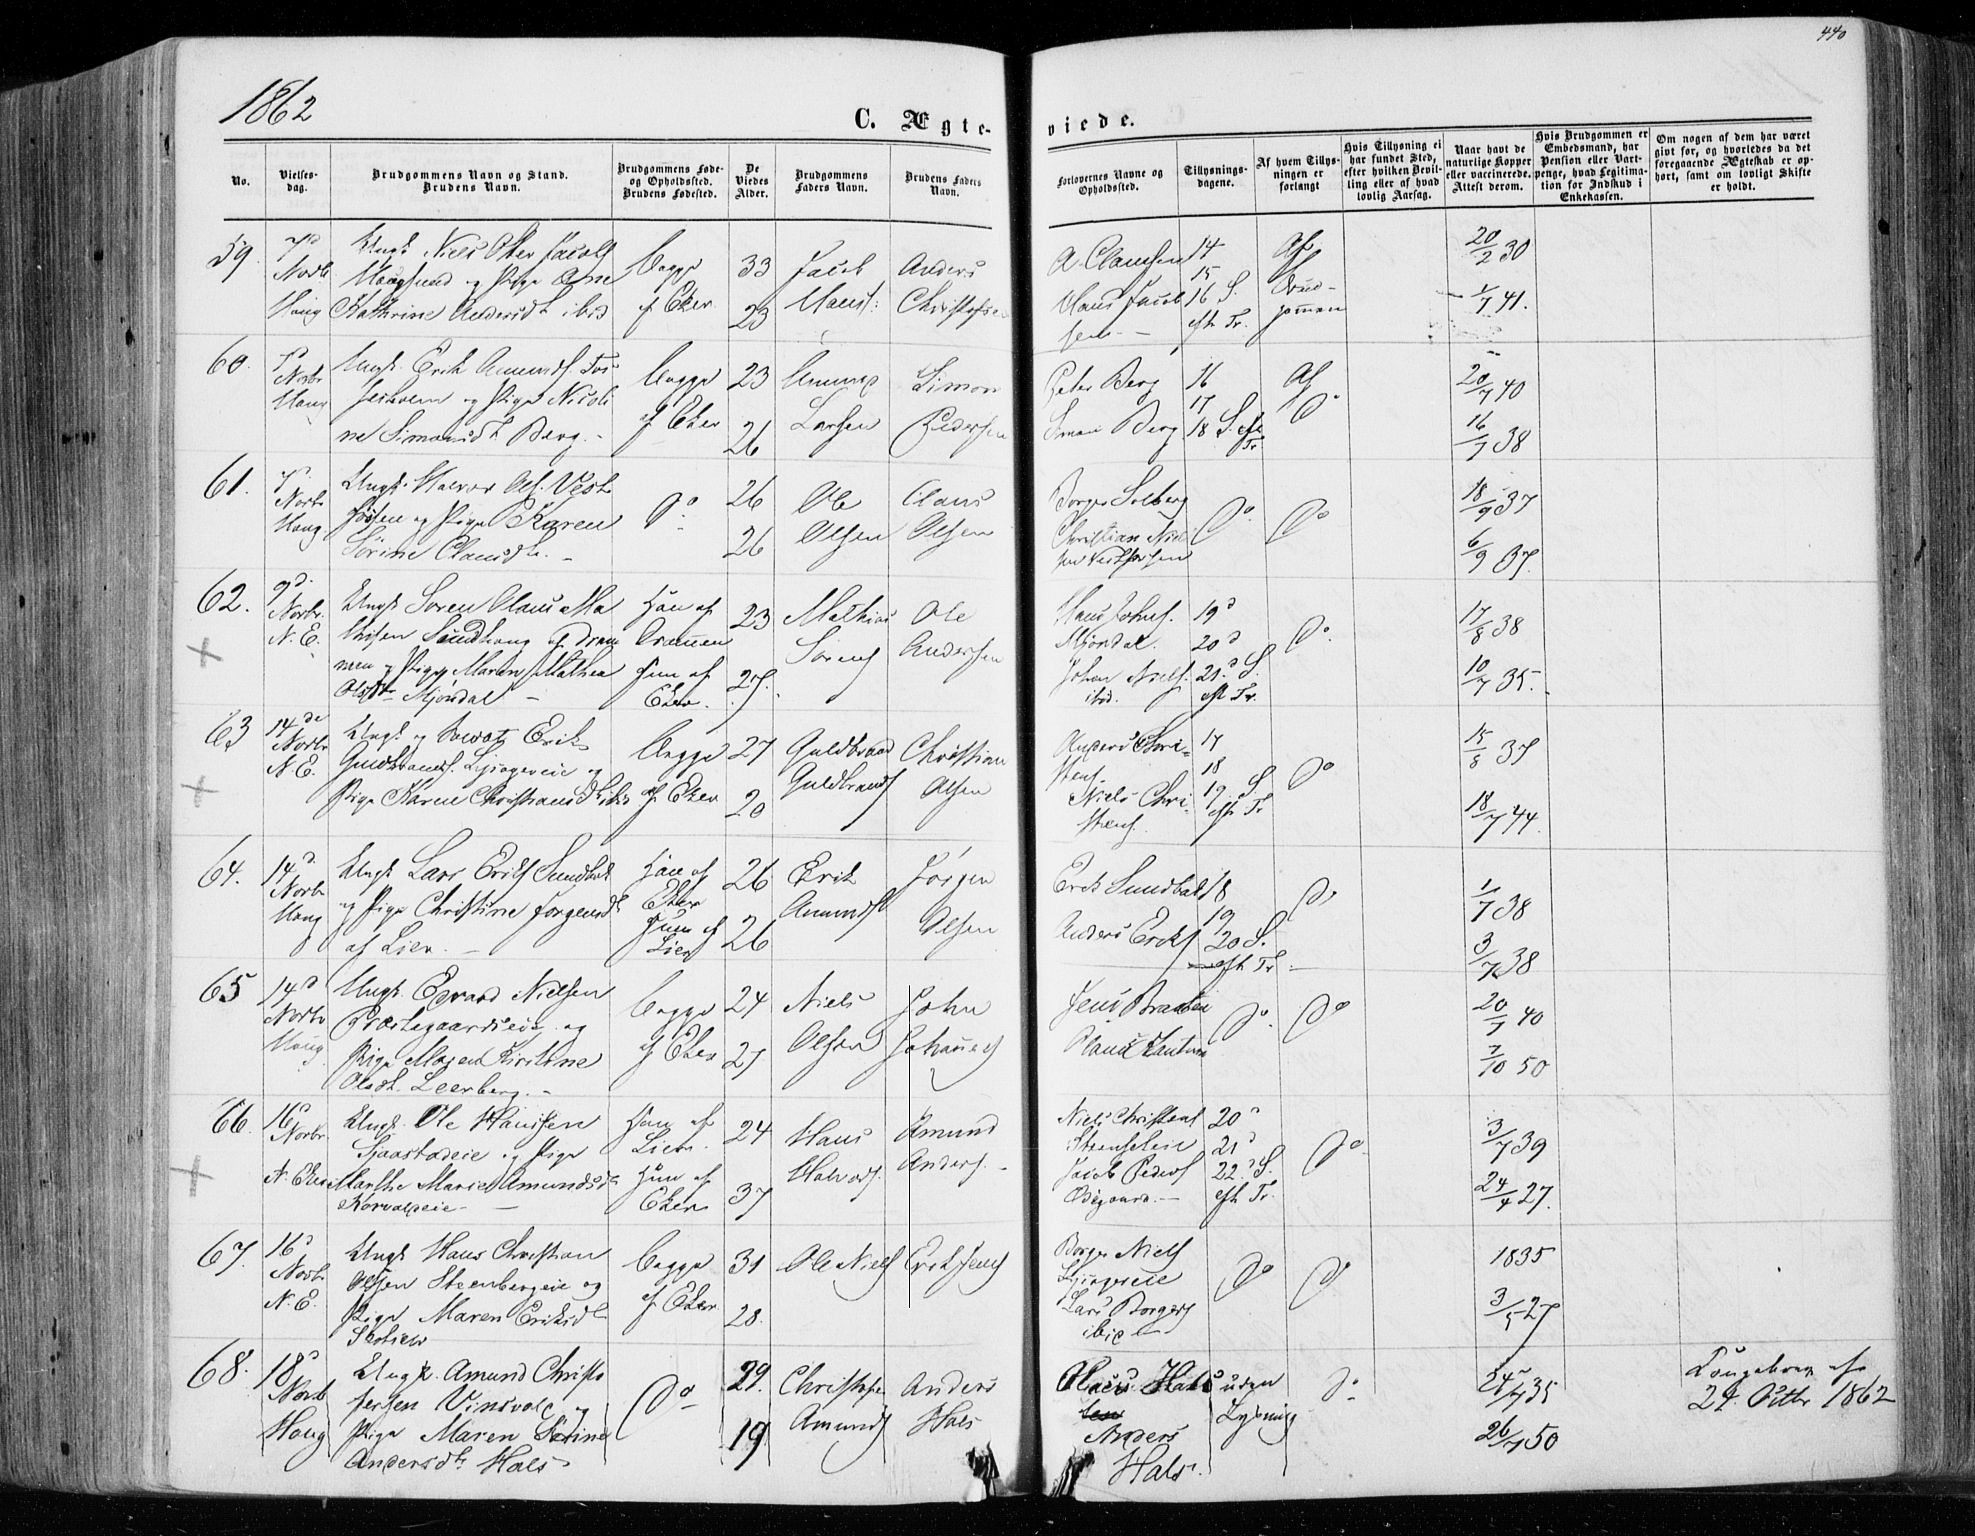 440
1862
C. Ægte-
viede.
No.
Vielses-
dag.
Brudgommens Navn og Stand.
Brudens Navn.
Brudgommens Føde-
og Opholdssted.
Brudens Fødested.
De
Viedes
Alder.
Brudgommens
Faders Navn.
Brudens Faders
Navn.
Forlovernes Navne og
Opholdssted.
Tillysnings-
dagene.
Af hvem Tillys-
ningen er
forlangt
Hvis Tillysning ei
har fundet Sted,
efter hvilken Bevil-
ling eller af hvad
lovlig Aarsag.
Naar havt de
naturlige Kopper
eller vaccinerede.
Attest derom.
Hvis Brudgommen er
Embedsmand, har
Pension eller Vart-
penge, hvad Legitima-
tion for Indskud i
Enkekassen.
Om nogen af dem har været
givt før, og hvorledes da det
foregaaende Ægteskab er op-
hørt, samt om lovligt Skifte
er holdt.
59.
Novbr
Haug
Ungk. Niels
og Pige Ane
Kathrine Andersdt. ibid
Begge
af Eker
33
23
Jacob
Hans:
Anders
Christofsen
A. Clausen
Hans Jacob
sen
14
15
16 S.
eft. Tr.
Af
Brud-
gommen
20/2 30
1/7 41.
60.
Novbr
Haug
Ungk. Erik Amunds.
og Pige Nicoli
ne Simonsdt. Berg.
Begge
af Eker
23
26
Amund
Larsen
Simon
Pedersen
Peter Berg
Simon Berg
16
17
18 S. eft.
Tr.
Af
Do
20/7 40
16/7 38
61.
Novbr
Haug
Ungk. Halvor Ols. Vest
fossen og Pige Karen
Sørine Clausdt.
Do
26
26
Ole
Olsen
Claus
Olsen
Borger Solberg
Christian Niel
sen Vestfossen
Do
Do
18/9 37
6/9 37.
62.
9d.
Novbr.
N. E.
Ungk. Søren Olaus Ma
thisen Sundhaug af Dram
men og Pige Maren Mathea
Olsdt. Mjøndal
Han af
Drammen
Hun af
Eker.
23
27.
Mathias
Sørens
Ole
Andersen
Hans Johns.
Mjøndal.
Johan Niels.
ibid.
19d
20d
21.d S.
eft. Tr.
Do.
17/8 38
10/7 35.
63
14de
Novbr
N. E.
Ungk. og Erik
Guldbrands. og
Pige Karen Christiansdt. ibid
Begge
af Eker
27
20
Guldbrand
Guldbrands
Christian
Olsen
Anders Chri-
stens.
Niels Chri-
stens.
17
18
19. S.
eft. Tr
Do
15/8 37
18/7 44.
64.
14d.
Novbr
Haug
Ungk. Lars Eriks Sundbak
og Pige Christine Jørgensdt.
af Lier.
Han af
Eker
Hun af
Lier
26
26
Erik
Amunds
Jørgen
Olsen
Erik Sundbak
Anders Eriks
18
19
20 S.
eft. Tr.
Do
1/7 38
3/7 38
65
14d
Novbr
Haug
Ungk. Edvard Nielsen
Præstegaardseie og
Pige Maren Kirstine
Olsdt. Leerberg.
Begge
af Eker
24
27
Niels
Olsen
John
Johannes
Jens Braaten
Do.
Do
20/7 40
7/10 50
66.
16d
Novbr
N. Eker
Ungk. Ole Hansen
Sjaastadeie og Pige
Marthe Marie Amundsdt.
Korvaldeie
Han af
Lier.
Hun af
Eker
24
37
Hans
Halvors.
Amund
Anders.
Niels Christens
Steenseteie
Jacob Peders
Ødegaard.
20d
21d
22.d S.
eft. Tr.
Do.
3/7 39
24/4 27.
67.
16d
Novbr
N. E.
Ungk Hans Christian
Olsen Steenbergeie og
Pige Maren Eriksdt.
Begge
af Eker
31
28.
Ole Niels
Erik Jens
Borger Niels
Lars Borgers
ibid
Do
Do
1835
3/5 27
68.
18d
Novb
Haug
Ungk. Amund Christo
fersen Vinsvold og
Pige Maren Sørine
Andersdt. Hals
Do
29.
19
Christofer
Amunds
Anders
Hals
Claus Hals
Anders
Hals.
uden
Lysning
Do
24/7 35
26/7 50
Kongebrev af
24. Octbr 1862